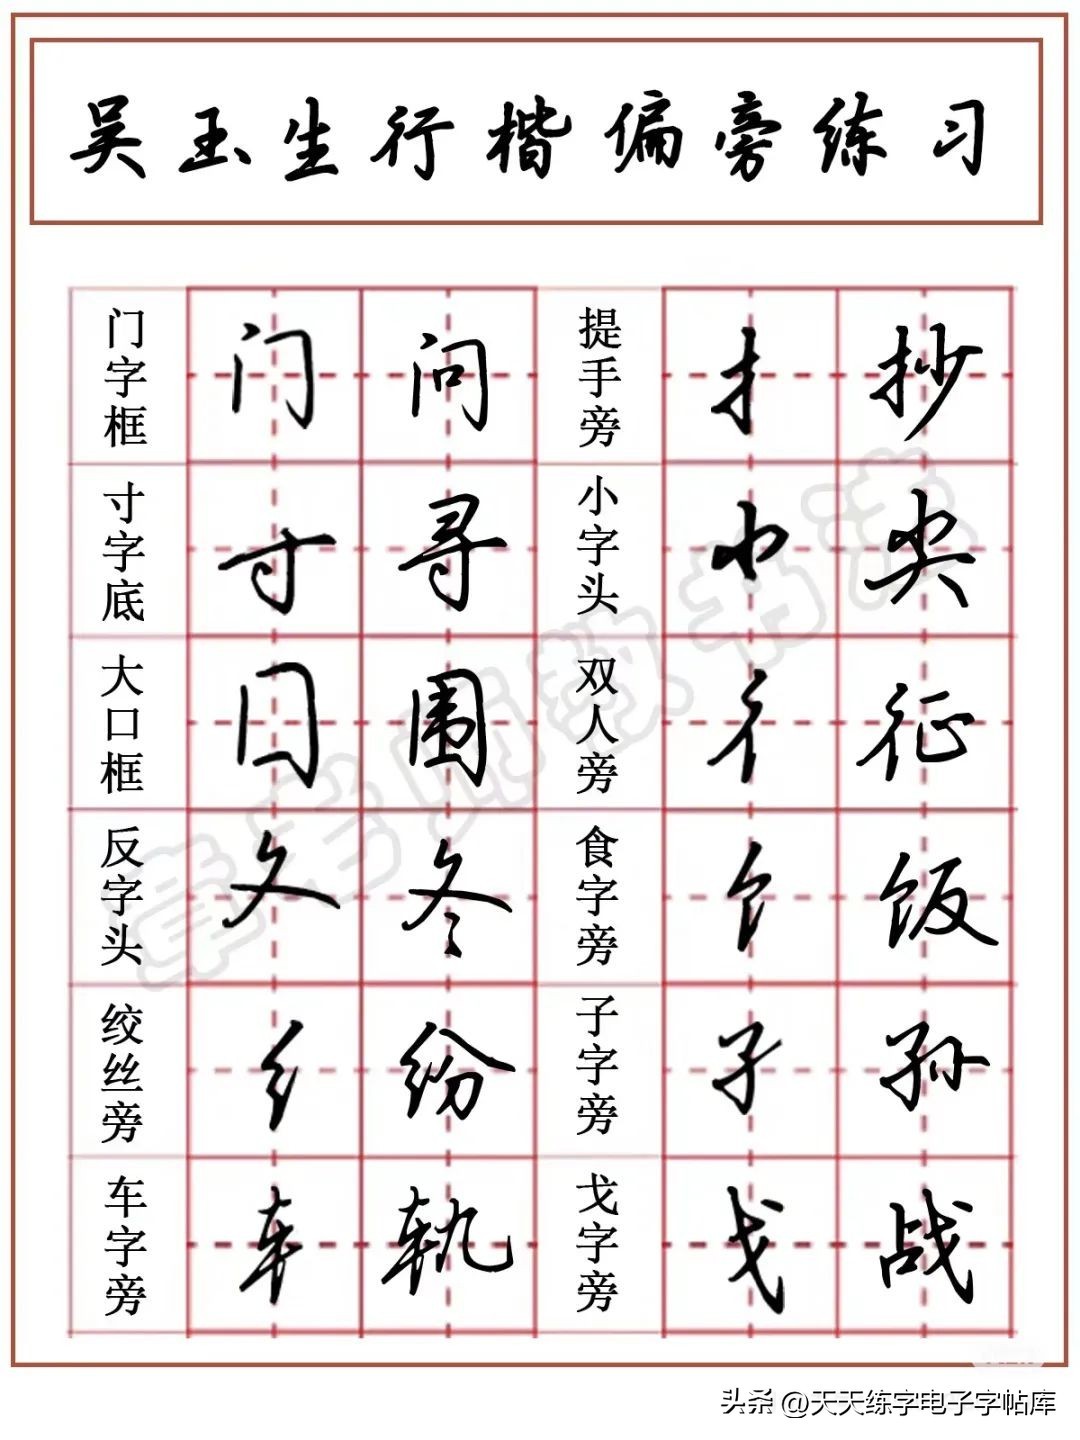 吴玉生行楷偏旁练习
门字框 门 问 提手旁 扌 抄
寸字底 寸 寻 小字头 小 尖
大口框 囗 围 双人旁 彳 征
反字头 夂 冬 食字旁 饣 饭
绞丝旁 纟 纷 子字旁 子 孙
车字旁 车 轨 戈字旁 戈 战
头条 @天天练字电子字帖库